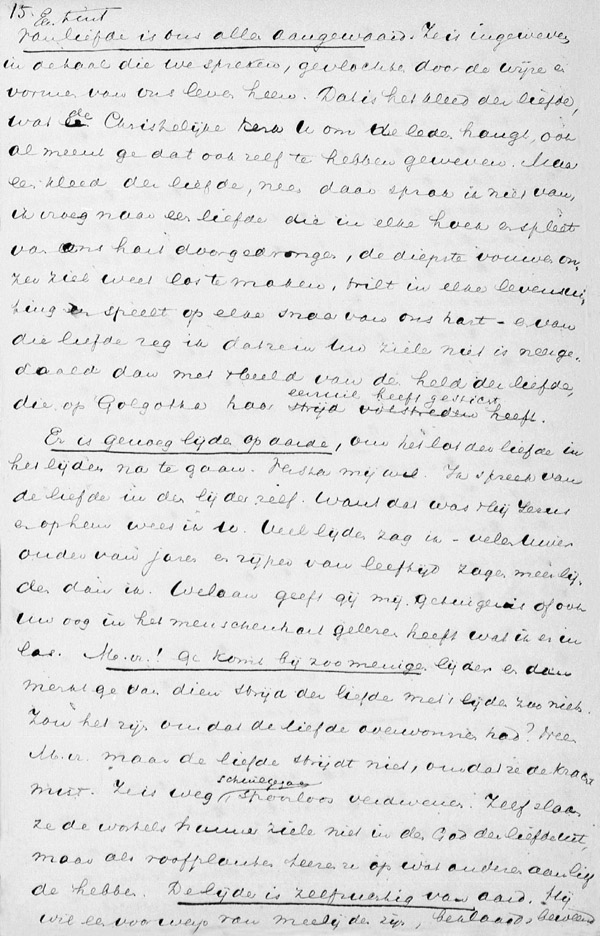 15. Een tint
van liefde is ons allen aangewaaid. Ze is ingeweven
in de taal die we spreken, gevlochten door de wijze en
vormen van ons leven heen. Dat is het kleed der liefde,
wat de Christelijke kerk U om de leden hangt, ook
al meent ge dat ook zelf te hebben geweven. Maar
een kleed der liefde, neen daar sprak ik niet van,
ik vroeg naar een liefde die in elke hoek en spleet
van ons hart doorgedrongen, de diepste vouwen on-
zer ziel weet los te maken, trilt in elke levensui-
ting en speelt op elke snaar van ons hart – en van
die liefde zeg ik dat ze in Uw ziele niet is neerge-
daald dan met 't beeld van de held der liefde,
die op Golgotha haar strijd volstreden heeft.
eenmaal heeft gesticht
Er is genoeg lijden op aarde, om het lot der liefde in
het lijden na te gaan. Versta mij wel. Ik spreek van
de liefde in den lijder zelf. Want dat was Hij Jezus
en op hem wees ik U. Veel lijden zag ik – velen Uwer
ouder van jaren en rijper van leeftijd zagen meer lij-
den dan ik. Welaan geeft gij mij getuigenis of ook
Uw oog in het menschenhart gelezen heeft wat ik er in
las. M.vr.! Ge komt bij zoo menigen lijder en dan
merkt ge van dien strijd der liefde met 't lijden zoo niets.
Zou het zijn omdat de liefde overwonnen had? Neen
M.vr. maar de liefde strijdt niet, omdat ze de kracht
mist. Ze is weg, spoorloos verdwenen. Zelf slaan
ze de wortels hunner ziele niet in den God der liefde uit,
maar als roofplanten teeren ze op wat anderen aan lief-
de hebben. De lijder is zelfzuchtig van aard. Hij
wil een voorwerp van medelijden zijn, beklaagd